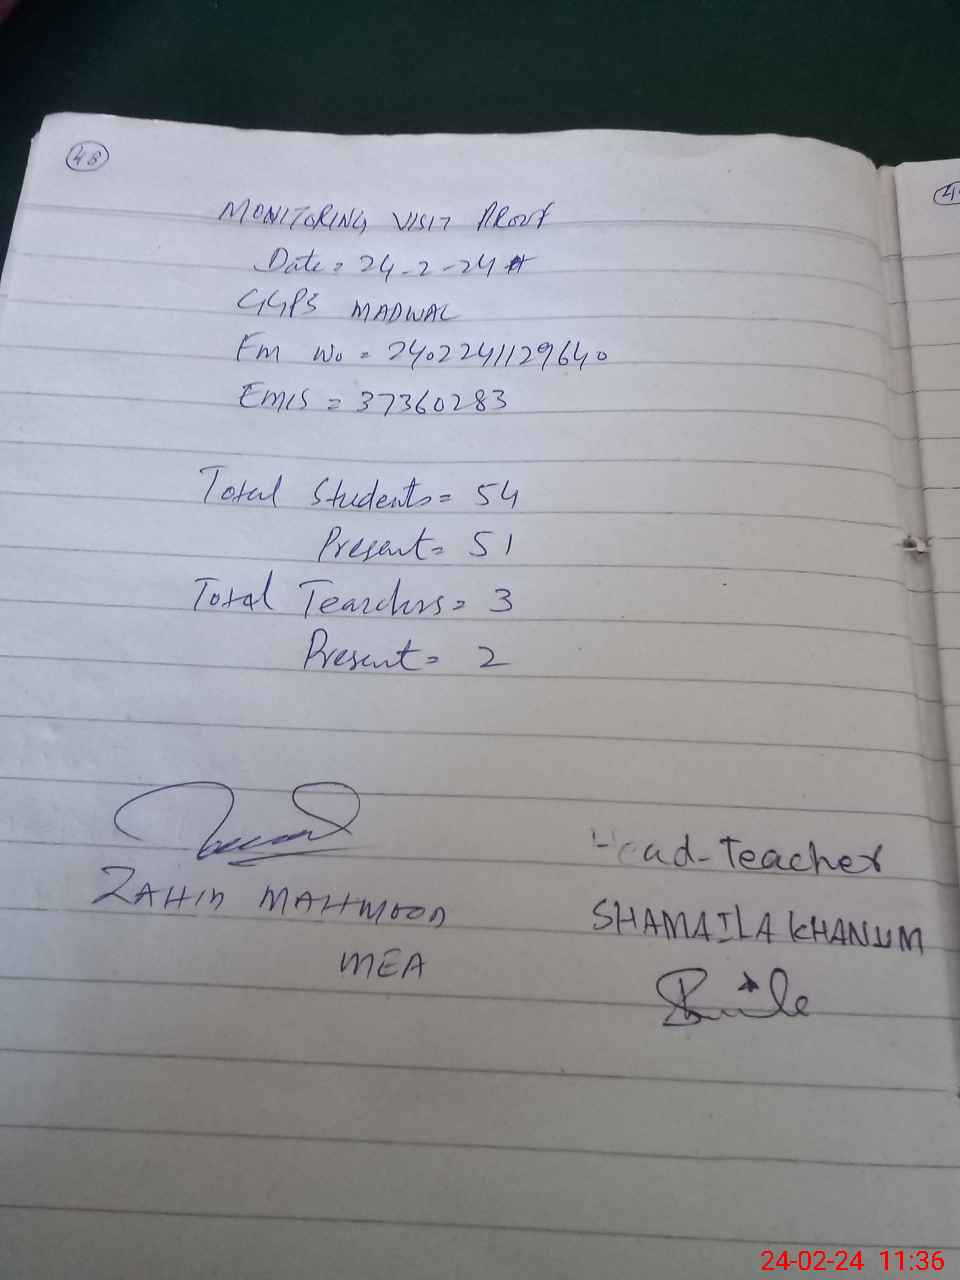 48
MONITORING VISIT PROOF
Date = 24-2-24
GGPS MADWAL
Fm No = 2402241129640
EMIS = 37360283
Total Students = 54
Present = 51
Total Teachers = 3
Present = 2
ZAHID MAHMOOD
MEA
Head-Teacher
SHAMAILA KHANUM
24-02-24 11:36